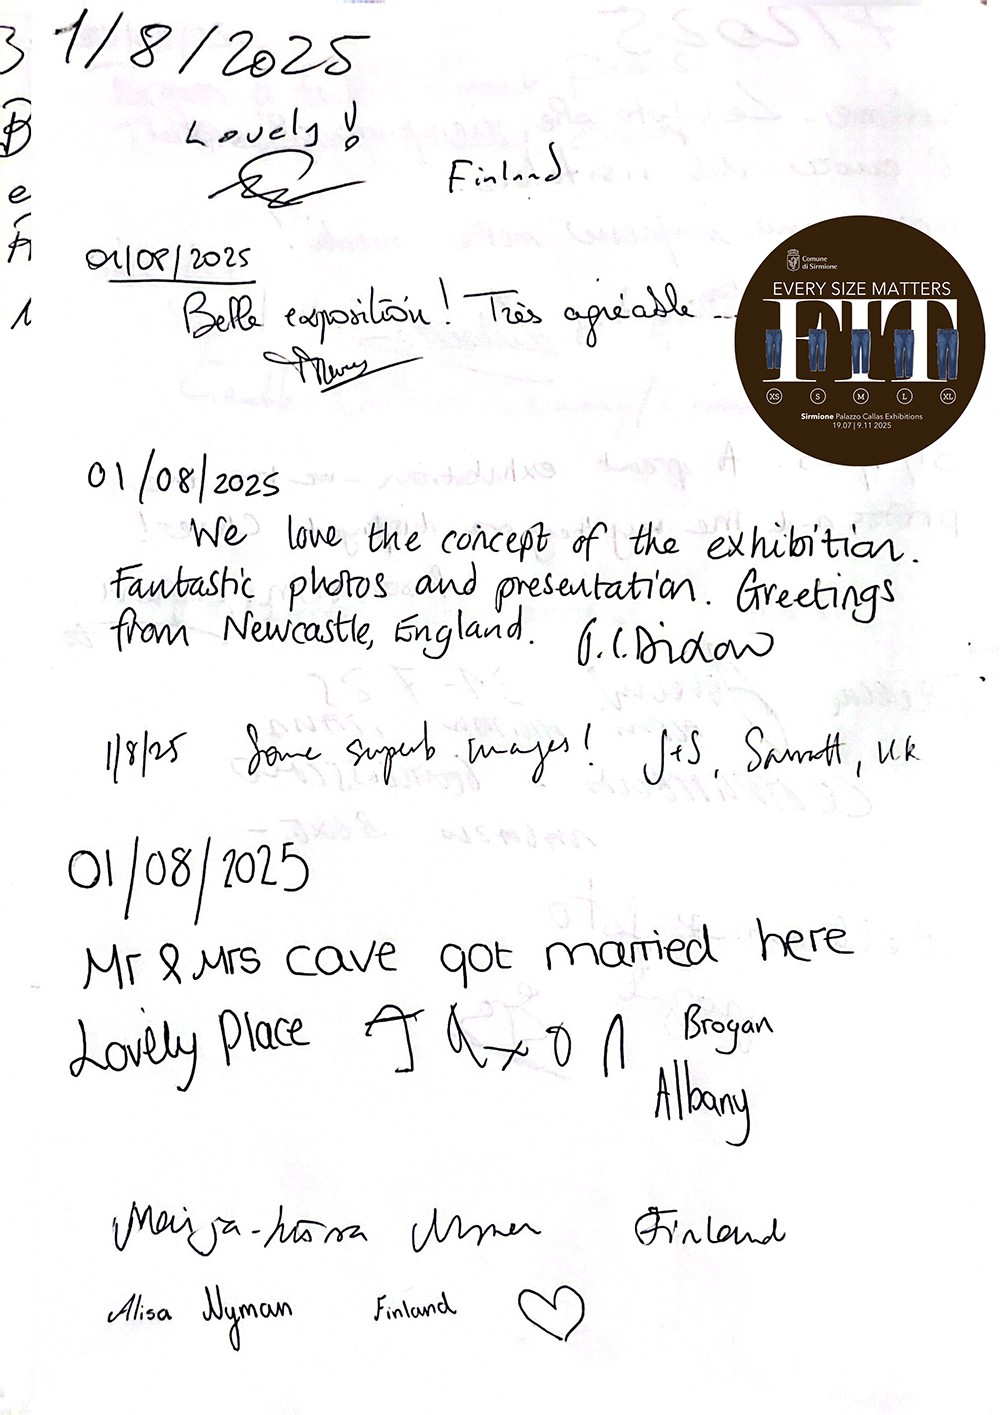 1/8/2025
Lovely!
Finland
01/08/2025
Belle exposition! Très agréable ...
Comune
di Sirmione
EVERY SIZE MATTERS
FIT
XS S M L XL
Sirmione Palazzo Callas Exhibitions
19.07 | 9.11 2025
01/08/2025
We love the concept of the exhibition.
Fantastic photos and presentation. Greetings
from Newcastle, England.
1/8/25 Some superb images! J+S, UK
01/08/2025
Mr & Mrs cave got married here
Lovely Place
Brogan
Albany
Finland
Alisa Nyman Finland